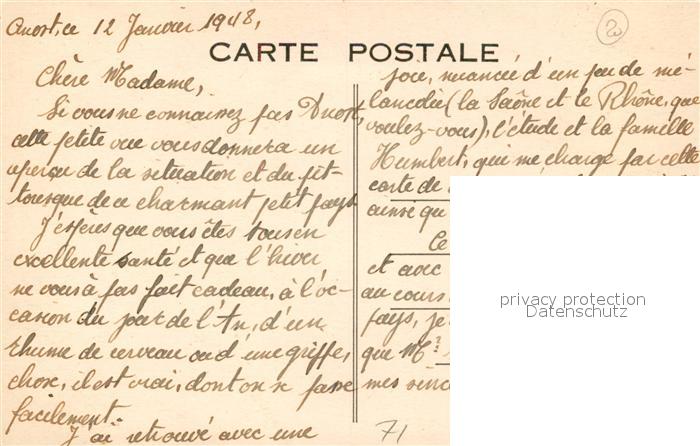 Anost, ce 12 Janvier 1948,
CARTE POSTALE
Chère Madame,
Si vous ne connaissez pas Anost,
cette petite vue vous donnera un
aperçu de la situation et du pit-
toresque de ce charmant petit pays.
J'espère que vous êtes tous en
excellente santé et que l'hiver
ne vous à pas fait cadeau, à l'oc-
casion du jour de l'An, d'un
rhume de cerveau ou d'une grippe,
chose, il est vrai, dont on se passe
facilement.
J'ai retrouvé avec une
joie, nuancée d'un peu de mé-
lancolie (la Saône et le Rhône, que
voulez-vous), l'étude et la famille
Humbert, qui me charge par cette
carte de
ainsi qu
Ce
et avec
au cours
pays, je
que Mr
mes sinc
71
2
privacy protection
Datenschutz